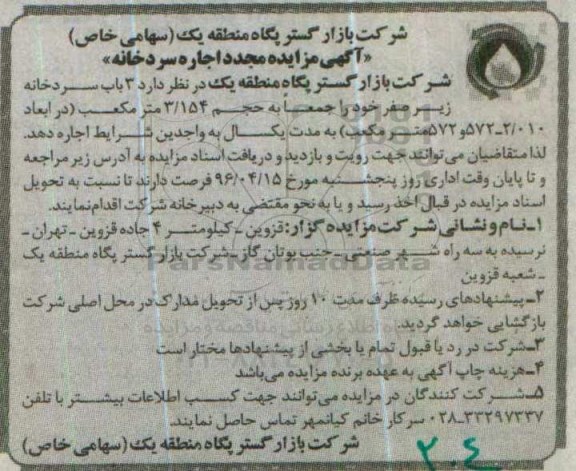 شرکت بازار گستر پگاه منطقه یک (سهامی خاص)
«آگهی مزایده مجدد اجاره سردخانه»
شرکت بازار گستر پگاه منطقه یک در نظر دارد ۳ باب سردخانه
زیر صفر خود را جمعاً به حجم ۳/۱۵۴ متر مکعب (در ابعاد
۲/۰۱۰-۵۷۲ و ۵۷۲ متر مکعب) به مدت یکسال به واجدین شرایط اجاره دهد.
لذا متقاضیان می توانند جهت رویت و بازدید و دریافت اسناد مزایده به آدرس زیر مراجعه
و تا پایان وقت اداری روز پنجشنبه مورخ ۹۶/۰۴/۱۵ فرصت دارند تا نسبت به تحویل
اسناد مزایده در قبال اخذ رسید و یا به نحو مقتضی به دبیرخانه شرکت اقدام نمایند.
۱-نام و نشانی شرکت مزایده گزار: قزوین - کیلومتر ۴ جاده قزوین - تهران -
نرسیده به سه راه شهر صنعتی - جنب بوتان گاز - شرکت بازار گستر پگاه منطقه یک
- شعبه قزوین
۲-پیشنهادهای رسیده ظرف مدت ۱۰ روز پس از تحویل مدارک در محل اصلی شرکت
بازگشایی خواهد گردید.
۳-شرکت در رد یا قبول تمام یا بخشی از پیشنهادها مختار است
۴-هزینه چاپ آگهی به عهده برنده مزایده می باشد
۵-شرکت کنندگان در مزایده می توانند جهت کسب اطلاعات بیشتر با تلفن
۰۲۸-۳۳۲۹۷۳۳۷ سرکار خانم کیانمهر تماس حاصل نمایند.
شرکت بازار گستر پگاه منطقه یک (سهامی خاص)
۲۰۴
ParsNamadData